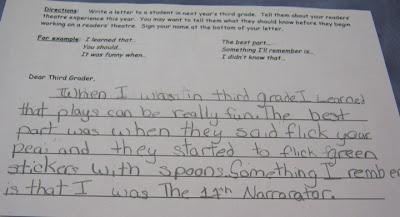 Directions: Write a letter to a student in next year's third grade. Tell them about your readers'
theatre experience this year. You may want to tell them what they should know before they begin
working on a readers' theatre. Sign your name at the bottom of your letter.
For example: I learned that...
You should...
It was funny when...
The best part...
Something I'll remember is...
I didn't know that...
Dear Third Grader,
When I was in third grade I learned
that plays can be really fun. The best
part was when they said flick your
peas and they started to flick green
stickers with spoons. Something I rember
is that I was The 14th Narrorator.